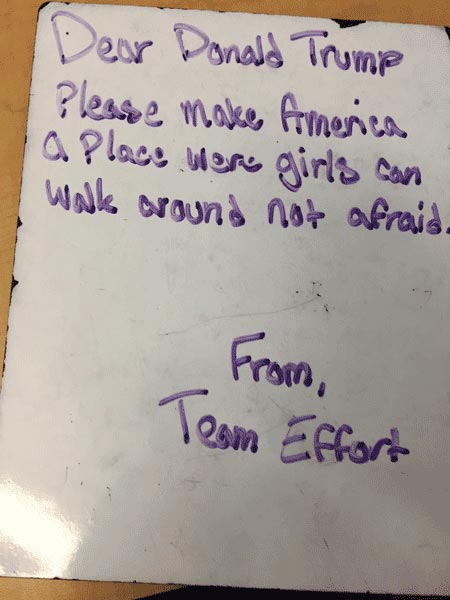 Dear Donald Trump
Please make America
a Place were girls can
walk around not afraid.
From,
Team Effort